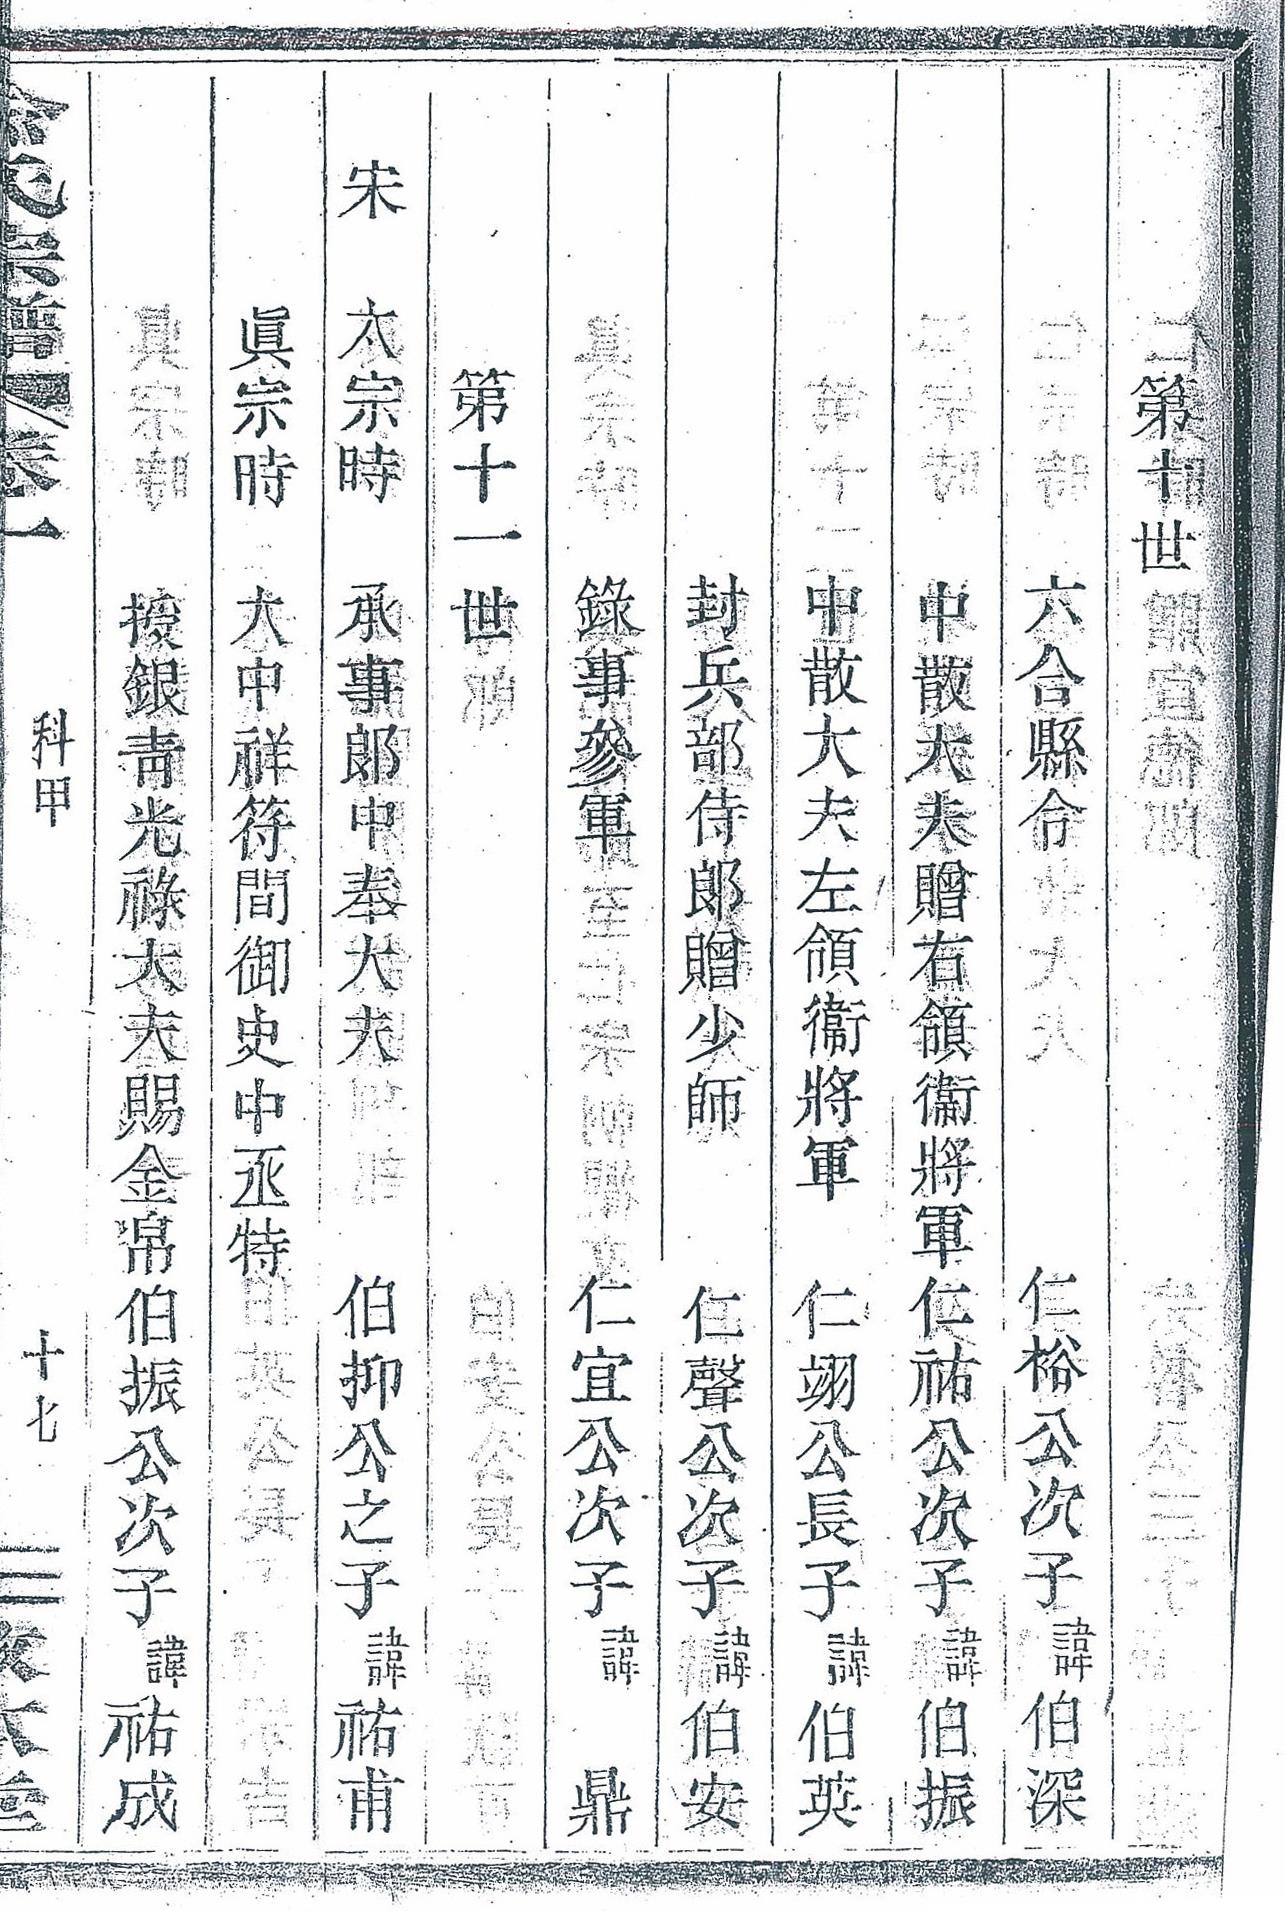 第十世
六合縣令 仁裕公次子 諱 伯深
中散大夫贈右領衞將軍 仁祐公次子 諱 伯振
中散大夫左領衞將軍 仁翊公長子 諱 伯英
封兵部侍郎贈少師 仁聲公次子 諱 伯安
錄事參軍 仁宜公次子 諱 鼎
第十一世
宋 太宗時 承事郎中奉大夫 伯抑公之子 諱 祐甫
眞宗時 大中祥符間御史中丞特
授銀靑光祿大夫賜金帛 伯振公次子 諱 祐成
氏宗譜 卷一 科甲 十七